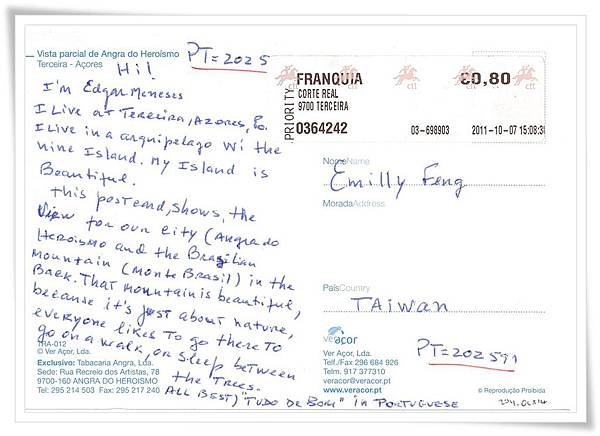 Vista parcial de Angra do Heroísmo
Terceira - Açores
PT=2025
Hi!
I'm Edgar Meneses
I Live at Terceira, Azores, Po.
I Live in a arquipelago wi the
nine Island. My Island is
Beautiful.
This postcard, shows, the
View for our city (Angra do
Heroismo and the Brasilian
Mountain (Monte Brasil) in the
Back. That mountain is beautiful,
because it's just about nature,
everyone likes to go there to
go on a walk, or sleep between
the trees.
ALL BEST) "TUDO DE BOM" in PORTUGUESE
TRA-012
© Ver Açor, Lda.
Exclusivo: Tabacaria Angra, Lda.
Sede: Rua Recreio dos Artistas, 78
9700-160 ANGRA DO HEROISMO
Tel: 295 214 503 Fax: 295 217 240
PRIORITY
FRANQUIA
CORTE REAL
9700 TERCEIRA
0364242
ctt
ctt
ctt
€0,80
03-698903
2011-10-07 15:08:3
NomeName
Emilly Feng
MoradaAddress
PaísCountry
TAIWAN
veraçor
Ver Açor, Lda.
Tel./Fax 296 684 926
Telm. 917 377310
veracor@veracor.pt
www.veracor.pt
PT=202591
© Reprodução Proibida